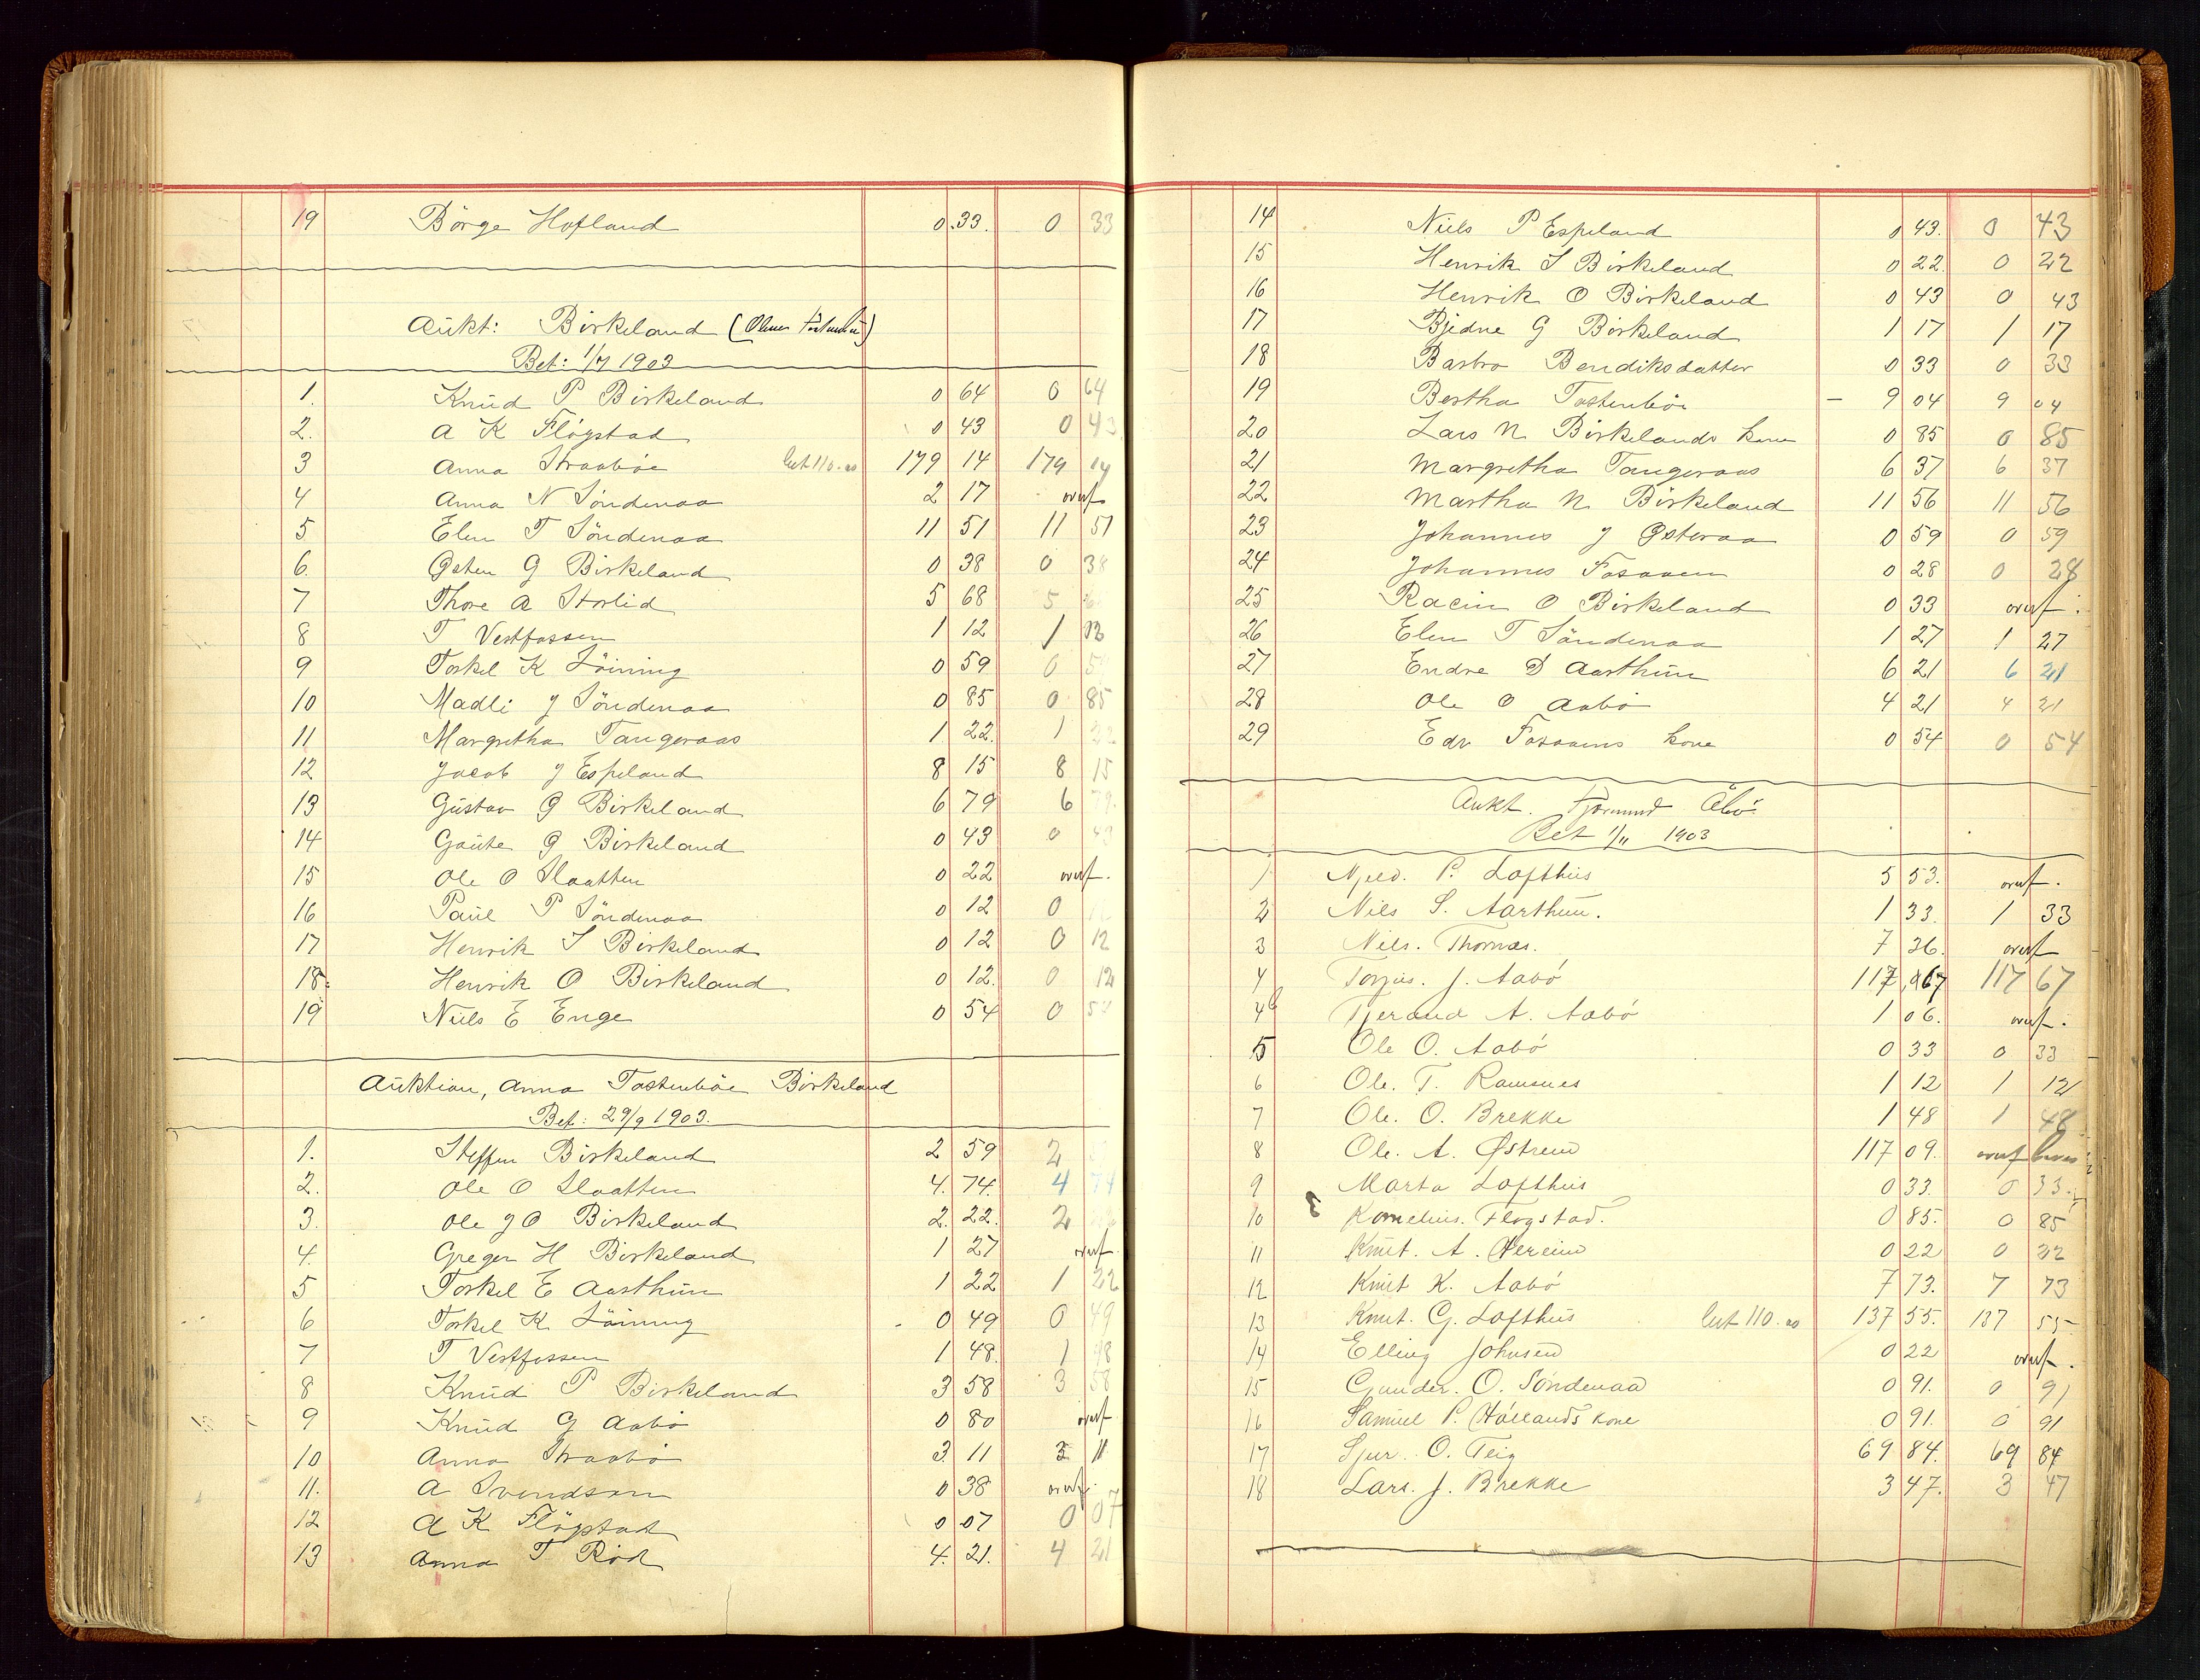 19 Börge Hofland 0.33. 0 33
Aukt: Birkeland (
Bet: 1/7 1903
1. Knud P Birkeland 0 64 0 64
2. A K Flögstad 0 43 0 43
3 Anna Straabøe 110.00 179 14 179 14
4 Anna N Söndenaa 2 17 overf
5 Elen T Söndenaa 11 51 11 51
6. Østen G Birkeland 0 38 0 38
7 Thore A Storlid 5 68 5 68
8 T Vestfossen 1 12 1 12
9 Torkel K Löining 0 59 0 59
10 Madli J Söndenaa 0 85 0 85
11 Margretha Tangeraas 1 22. 1 22
12 Jacob J Espeland 8 15 8 15
13 Gustav G Birkeland 6 79 6 79.
14 Gaute G Birkeland 0 43 0 43
15 Ole O Slaatten 0 22 overf.
16 Paul P Söndenaa 0 12 0 12
17 Henrik S Birkeland 0 12 0 12
18. Henrik O Birkeland 0 12. 0 12
19 Niels E Enge 0 54 0 54
Auktion, Anna Tostenbøe Birkeland
Bet: 29/9 1903.
1. Steffen Birkeland 2 59 2 59
2. Ole O Slaatten 4. 74. 4 74
3. Ole J O Birkeland 2. 22. 2 22
4. Greger H Birkeland 1 27 overf.
5 Torkel E Aarthun 1 22 1 22
6 Torkel K Löining 0 49 0 49
7 T Vestfossen 1 48. 1 48
8 Knud P Birkeland 3 58 3 58
9 Knud G Aabö 0 80 overf
10 Anna Straabö 3 11 3 11
11. A Svendsen 0 38 overf.
12 A K Flögstad 0 07 0 07
13 Anna T Röd 4. 21. 4 21
14 Niels P Espeland 0 43. 0 43
15 Henrik S Birkeland 0 22. 0 22
16 Henrik O Birkeland 0 43 0 43
17 Bjedne G Birkeland 1 17 1 17
18 Barbro Bendiksdatter 0 33 0 33
19 Bertha Tostenbøe – 9 04 9 04
20 Lars N Birkelands kone 0 85 0 85
21 Margretha Tangeraas 6 37 6 37
22 Martha N. Birkeland 11 56 11 56
23 Johannes J Østeraa 0 59 0 59
24 Johannes Fosaaen 0 28 0 28
25 Racin O Birkeland 0 33 overf.
26 Elen T Söndenaa 1 27 1 27
27 Endre D Aarthun 6 21 6 21
28 Ole O Aabö 4 21 4 21
29 Edv Fosaaens kone 0 54 0 54
Aukt. Tjermund Åbö
Bet 1/11 1903
1 P. Lofthus 5 53. overf.
2 Nils S. Aarthun. 1 33. 1 33
3 Nils. Thomas. 7 36. overf
4 Torjus. J. Aabö 117 67 117 67
4b Tjerand A. Aabö 1 06. overf.
5 Ole O. Aabö 0 33 0 33
6 Ole. T. Ramsnes 1 12 1 12
7 Ole. O. Brekke 1 48 1 48
8 Ole. A. Østrem 117 09. overf
9 Marta Lofthus 0 33. 0 33.
10 Kornelius. Flogstad. 0 85. 0 85
11 Knut. A. 0 22 0 22
12 Knut K. Aabö 7 73. 7 73
13 Knut. G. Lofthus 110.00 137 55. 137 55
14 Elling Johnsen 0 22 overf.
15 Gunder. O. Söndenaa 0 91. 0 91
16 Samuel P. kone 0 91. 0 91
17 Sjur. O. Teig 69 84. 69 84
18 Lars. J. Brekke 3 47. 3 47